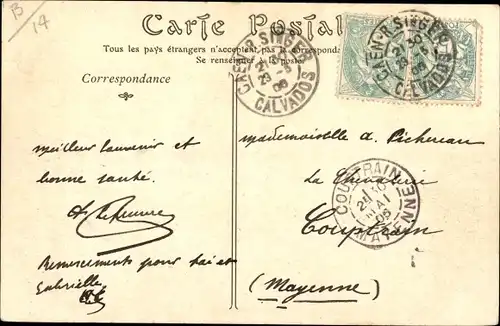 B
14
Carte Postale
Tous les pays étrangers n'acceptent pas la correspondance
Se renseigner à la poste
Correspondance
CAEN-R. SINGER
21 30
29 -5
06
CALVADOS
CAEN-R. SINGER
21 30
29 -5
06
CALVADOS
meilleur souvenir et
bonne santé.
Remerciements pour toi et
Gabrielle
mademoiselle a. Pichereau
La Chevalerie
Couptrain
(Mayenne)
COUPTRAIN
MAI
MAYENNE